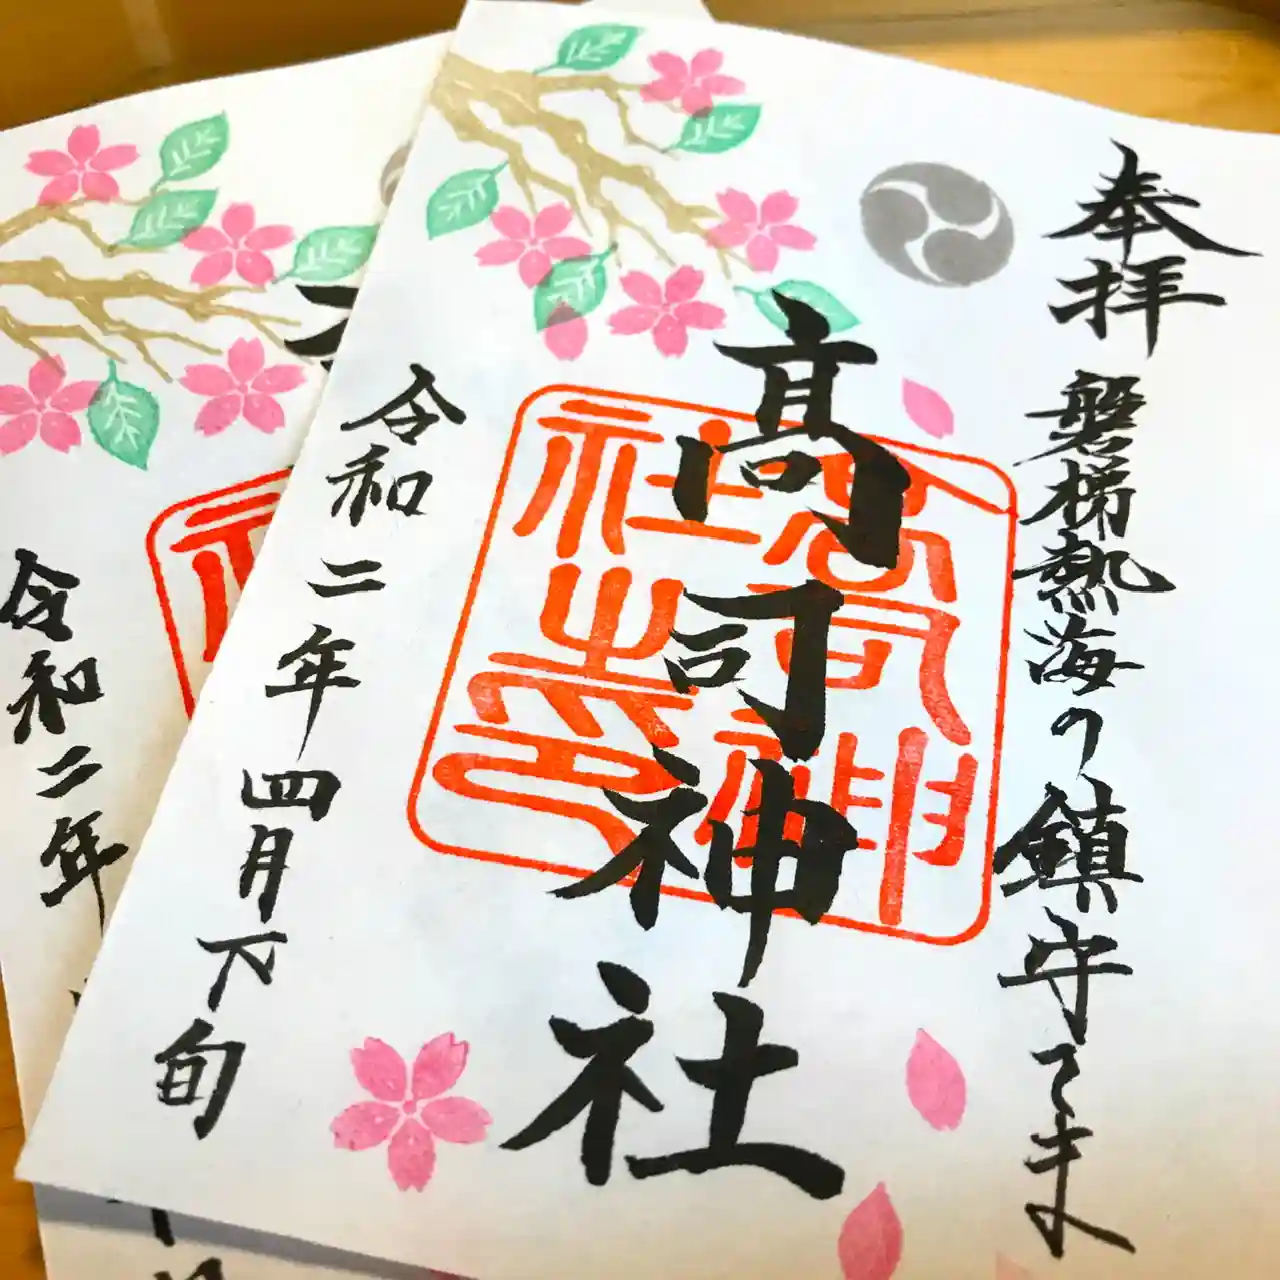 奉拝 磐梯熱海の鎮守さま
髙司神社
高司神
社之印
令和二年四月下旬
令和二年